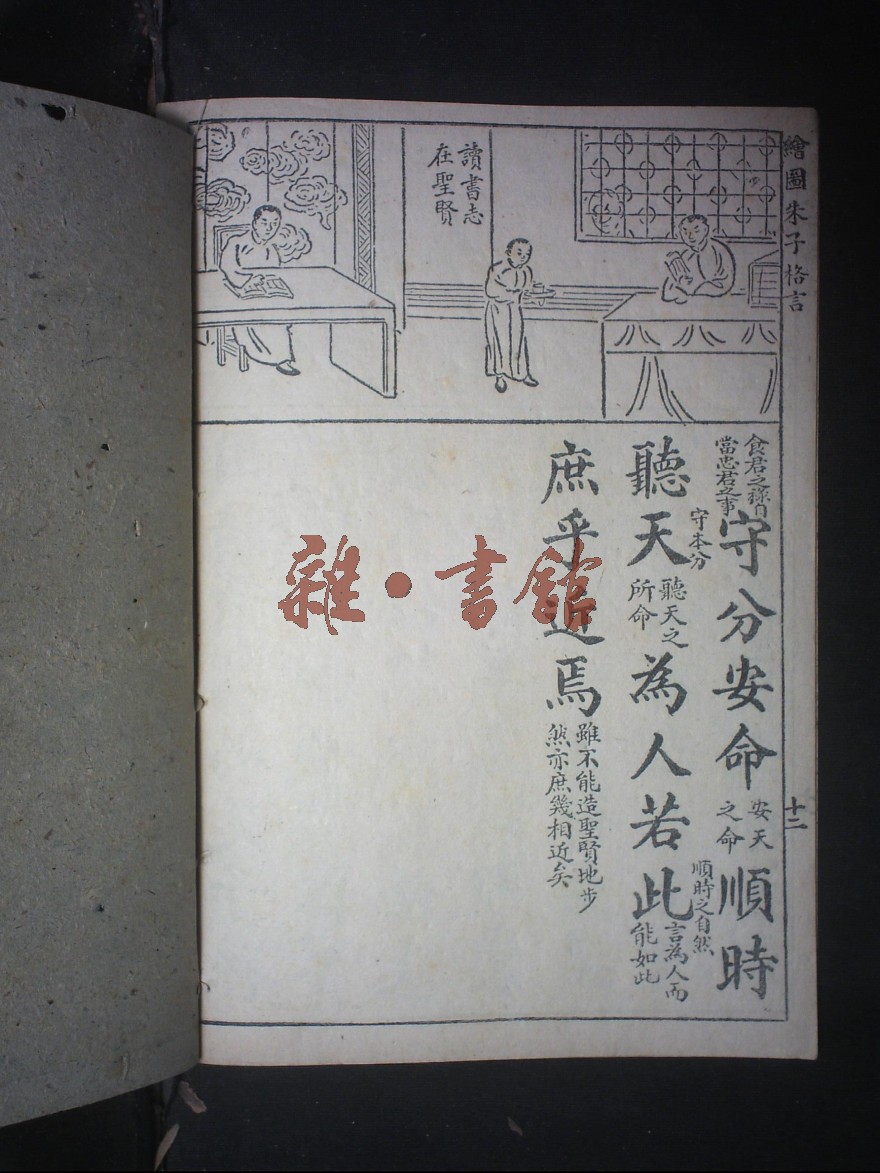 繪圖朱子格言
十二
讀書志
在聖賢
食君之祿自
當忠君之事
守分安命
守本分
安天
之命
順時
順時之自然
聽天
聽天之
所命
為人若此
言為人而
能如此
庶乎近焉
雖不能造聖賢地步
然亦庶幾相近矣
雜·書館